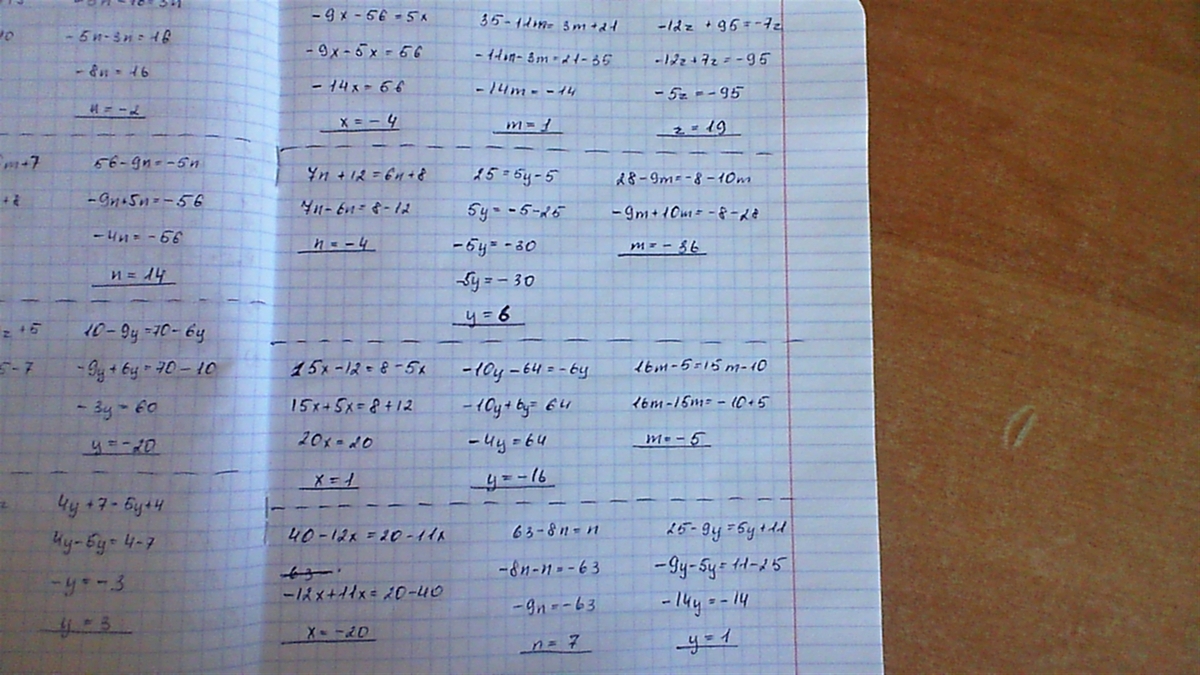 -5n-16=3n
-5n-3n=16
-8n=16
n=-2
m+7
56-9n=-5n
-9n+5n=-56
-4n=-56
n=14
z+5
10-9y=70-6y
5-7
-9y+6y=70-10
-3y=60
y=-20
4y+7=5y+4
4y-5y=4-7
-y=-3
y=3
-9x-56=5x
-9x-5x=56
-14x=56
x=-4
35-11m=3m+21
-11m-3m=21-35
-14m=-14
m=1
-12z+95=-7z
-12z+7z=-95
-5z=-95
z=19
7n+12=6n+8
7n-6n=8-12
n=-4
25=5y-5
5y=-5-25
-5y=-30
-5y=-30
y=6
28-9m=-8-10m
-9m+10m=-8-28
m=-36
15x-12=8-5x
15x+5x=8+12
20x=20
x=1
-10y-64=-6y
-10y+6y=64
-4y=64
y=-16
16m-5=15m-10
16m-15m=-10+5
m=-5
40-12x=20-11x
-12x+11x=20-40
x=-20
63-8n=n
-8n-n=-63
-9n=-63
n=7
25-9y=5y+11
-9y-5y=11-25
-14y=-14
y=1